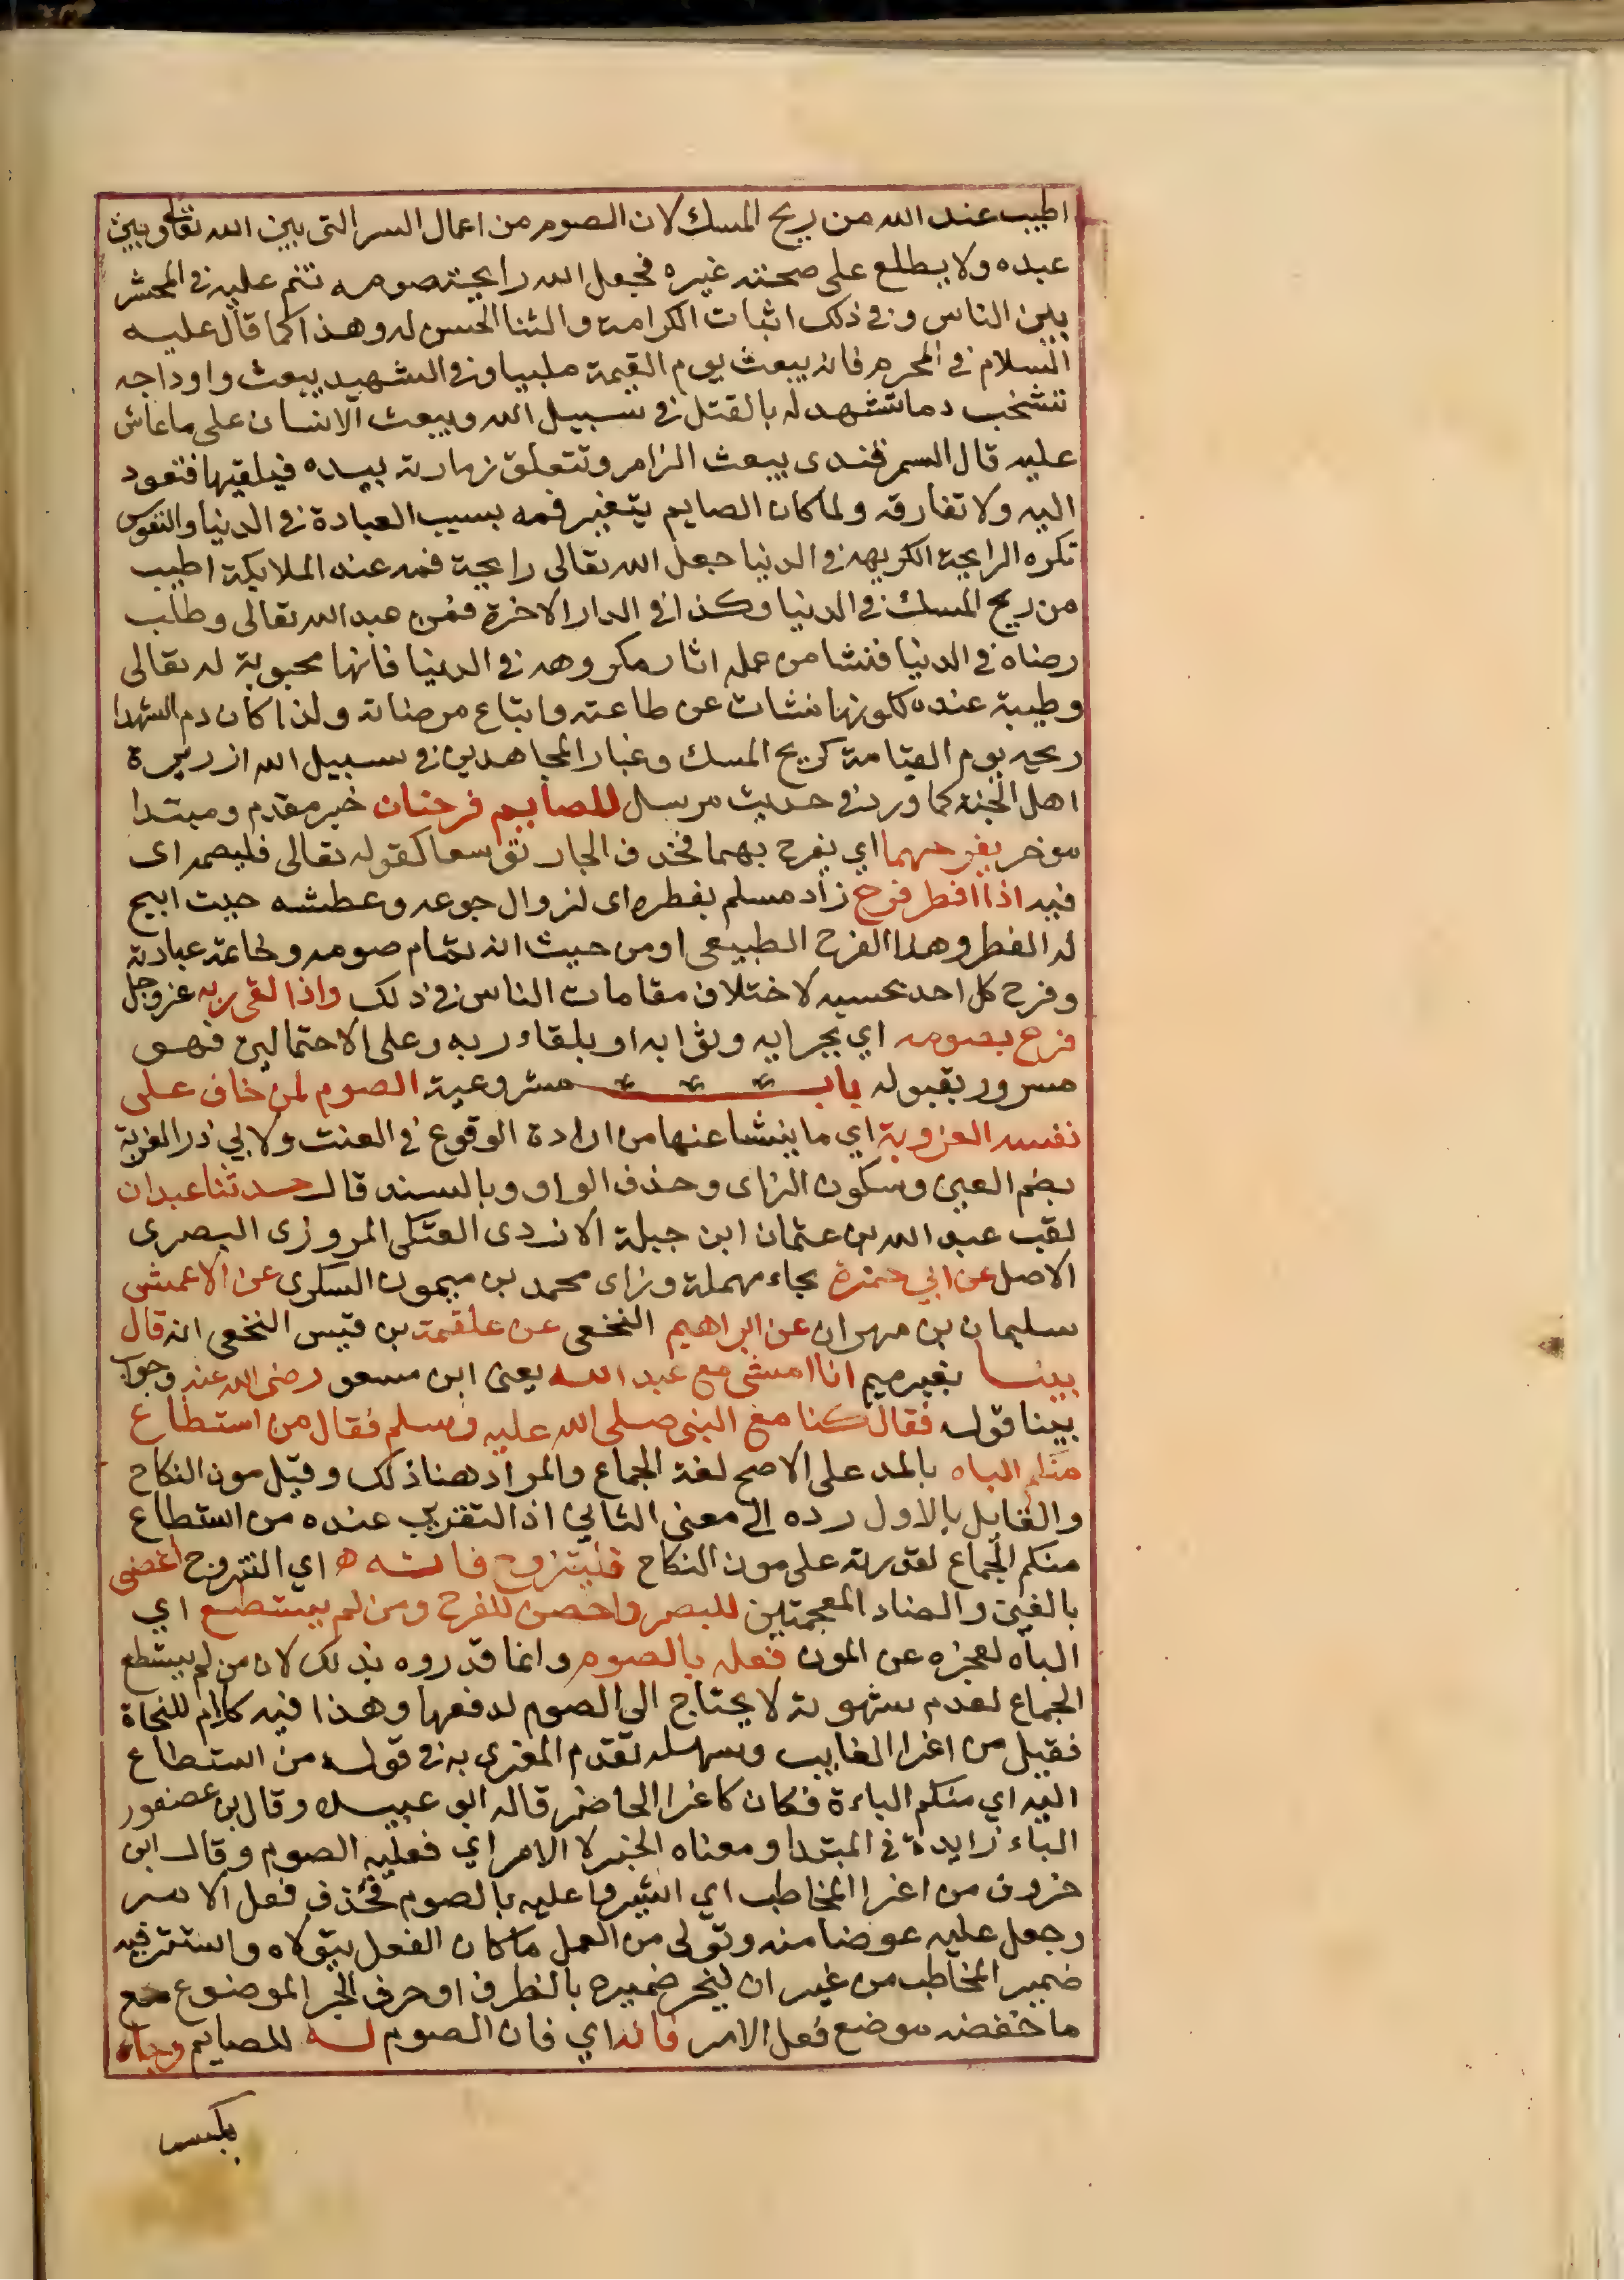 اطيب عند الله من ريح المسك لان الصوم من اعمال السر التى بين الله تعالى وبين
عبده ولا يطلع على صحته غيره فجعل الله رايحة صومه تنم عليه فى المحشر
بين الناس وفى ذلك اثبات الكرامة والثنا الحسن له وهذا كما قال عليه
السلام فى المحرم فانه يبعث يوم القيمة ملبيا وفى الشهيد يبعث واوداجه
تشخب دما تشهد له بالقتل فى سبيل الله ويبعث الانسان على ماعاش
عليه قال السمرقندى يبعث الزامر وتتعلق زمارته بيده فيلقيها فتعود
اليه ولا تفارقه ولما كان الصايم يتغير فمه بسبب العبادة فى الدنيا والنفوس
تكره الرايحة الكريهه فى الدنيا جعل الله تعالى رايحة فمه عند الملايكة اطيب
من ريح المسك فى الدنيا وكذا فى الدار الاخرة فمن عبد الله تعالى وطلب
رضاه فى الدنيا فنشا من عمله اثار مكروهه فى الدنيا فانها محبوبة له تعالى
وطيبة عنده لكونها نشات عن طاعته واتباع مرضاته ولذا كان دم الشهدا
ريحه يوم القيامة كريح المسك وغبار المجاهدين فى سبيل الله ازريرة
اهل الجنة كما ورد فى حديث مرسل للصايم فرحتان خبر مقدم ومبتدا
موخر يفرحهما اي يفرح بهما فحذف الجار توسعا كقوله تعالى فليصمه اى
فيه اذا افطر فرح زاد مسلم بفطره اى لزوال جوعه وعطشه حيث ابيح
له الفطر وهذا الفرح الطبيعى او من حيث انه تمام صومه وخاتمة عبادته
وفرح كل احد بحسبه لاختلاف مقامات الناس فى ذلك واذا لقى ربه عز وجل
فرح بصومه اي بجزايه وثوابه او بلقاء ربه وعلى الاحتمالين فهو
مسرور بقبوله باب مشروعية الصوم لمن خاف على
نفسه العزوبة اي ما ينشا عنها من ارادة الوقوع فى العنت ولابي ذر العزبة
بضم العين وسكون الزاى وحذف الواو وبالسند قال حدثنا عبدان
لقب عبد الله بن عثمان ابن جبلة الازدى العتكى المروزى البصرى
الاصل عن ابي حمزة بحاء مهملة وزاى محمد بن ميمون السكرى عن الاعمش
سليمان بن مهران عن ابراهيم النخعى عن علقمة بن قيس النخعى انه قال
بينا بغير ميم انا امشى مع عبد الله يعنى ابن مسعو رضى الله عنه وجواب
بينا قوله فقال كنا مع النبى صلى الله عليه وسلم فقال من استطاع
منكم الباه بالمد على الاصح لغة الجماع والمراد هنا ذلك وقيل مون النكاح
والقايل بالاول رده الى معنى الثاني اذ التقدير عنده من استطاع
منكم الجماع لقدرته على مون النكاح فليتزوج فانه اي التزوج اغض
بالغين والضاد المعجمتين للبصر واحصن للفرج ومن لم يستطع اي
الباه لعجزه عن المون فعليه بالصوم وانما قدروه بذلك لان من لم يستطع
الجماع لعدم شهوته لا يحتاج الى الصوم لدفعها وهذا فيه كلام للنحاة
فقيل من اغرا الغايب وسهله تقدم المغرى به فى قوله من استطاع
اليه اي منكم الباءة فكان كاغرا الحاضر قاله ابو عبيد وقال بن عصفور
الباء زايدة فى المبتدا ومعناه الخبر لا الامر اي فعليه الصوم وقال ابن
خروف من اغرا المخاطب اي اشيروا عليه بالصوم فحذف فعل الامر
وجعل عليه عوضا منه وتولى من العمل ما كان الفعل يتولاه واستتر فيه
ضمير المخاطب من غير ان ينجر ضميره بالظرف او حرف الجر الموضوع مع
ما خفضه موضع فعل الامر فانه اي فان الصوم له للصايم وجاء
بكسر